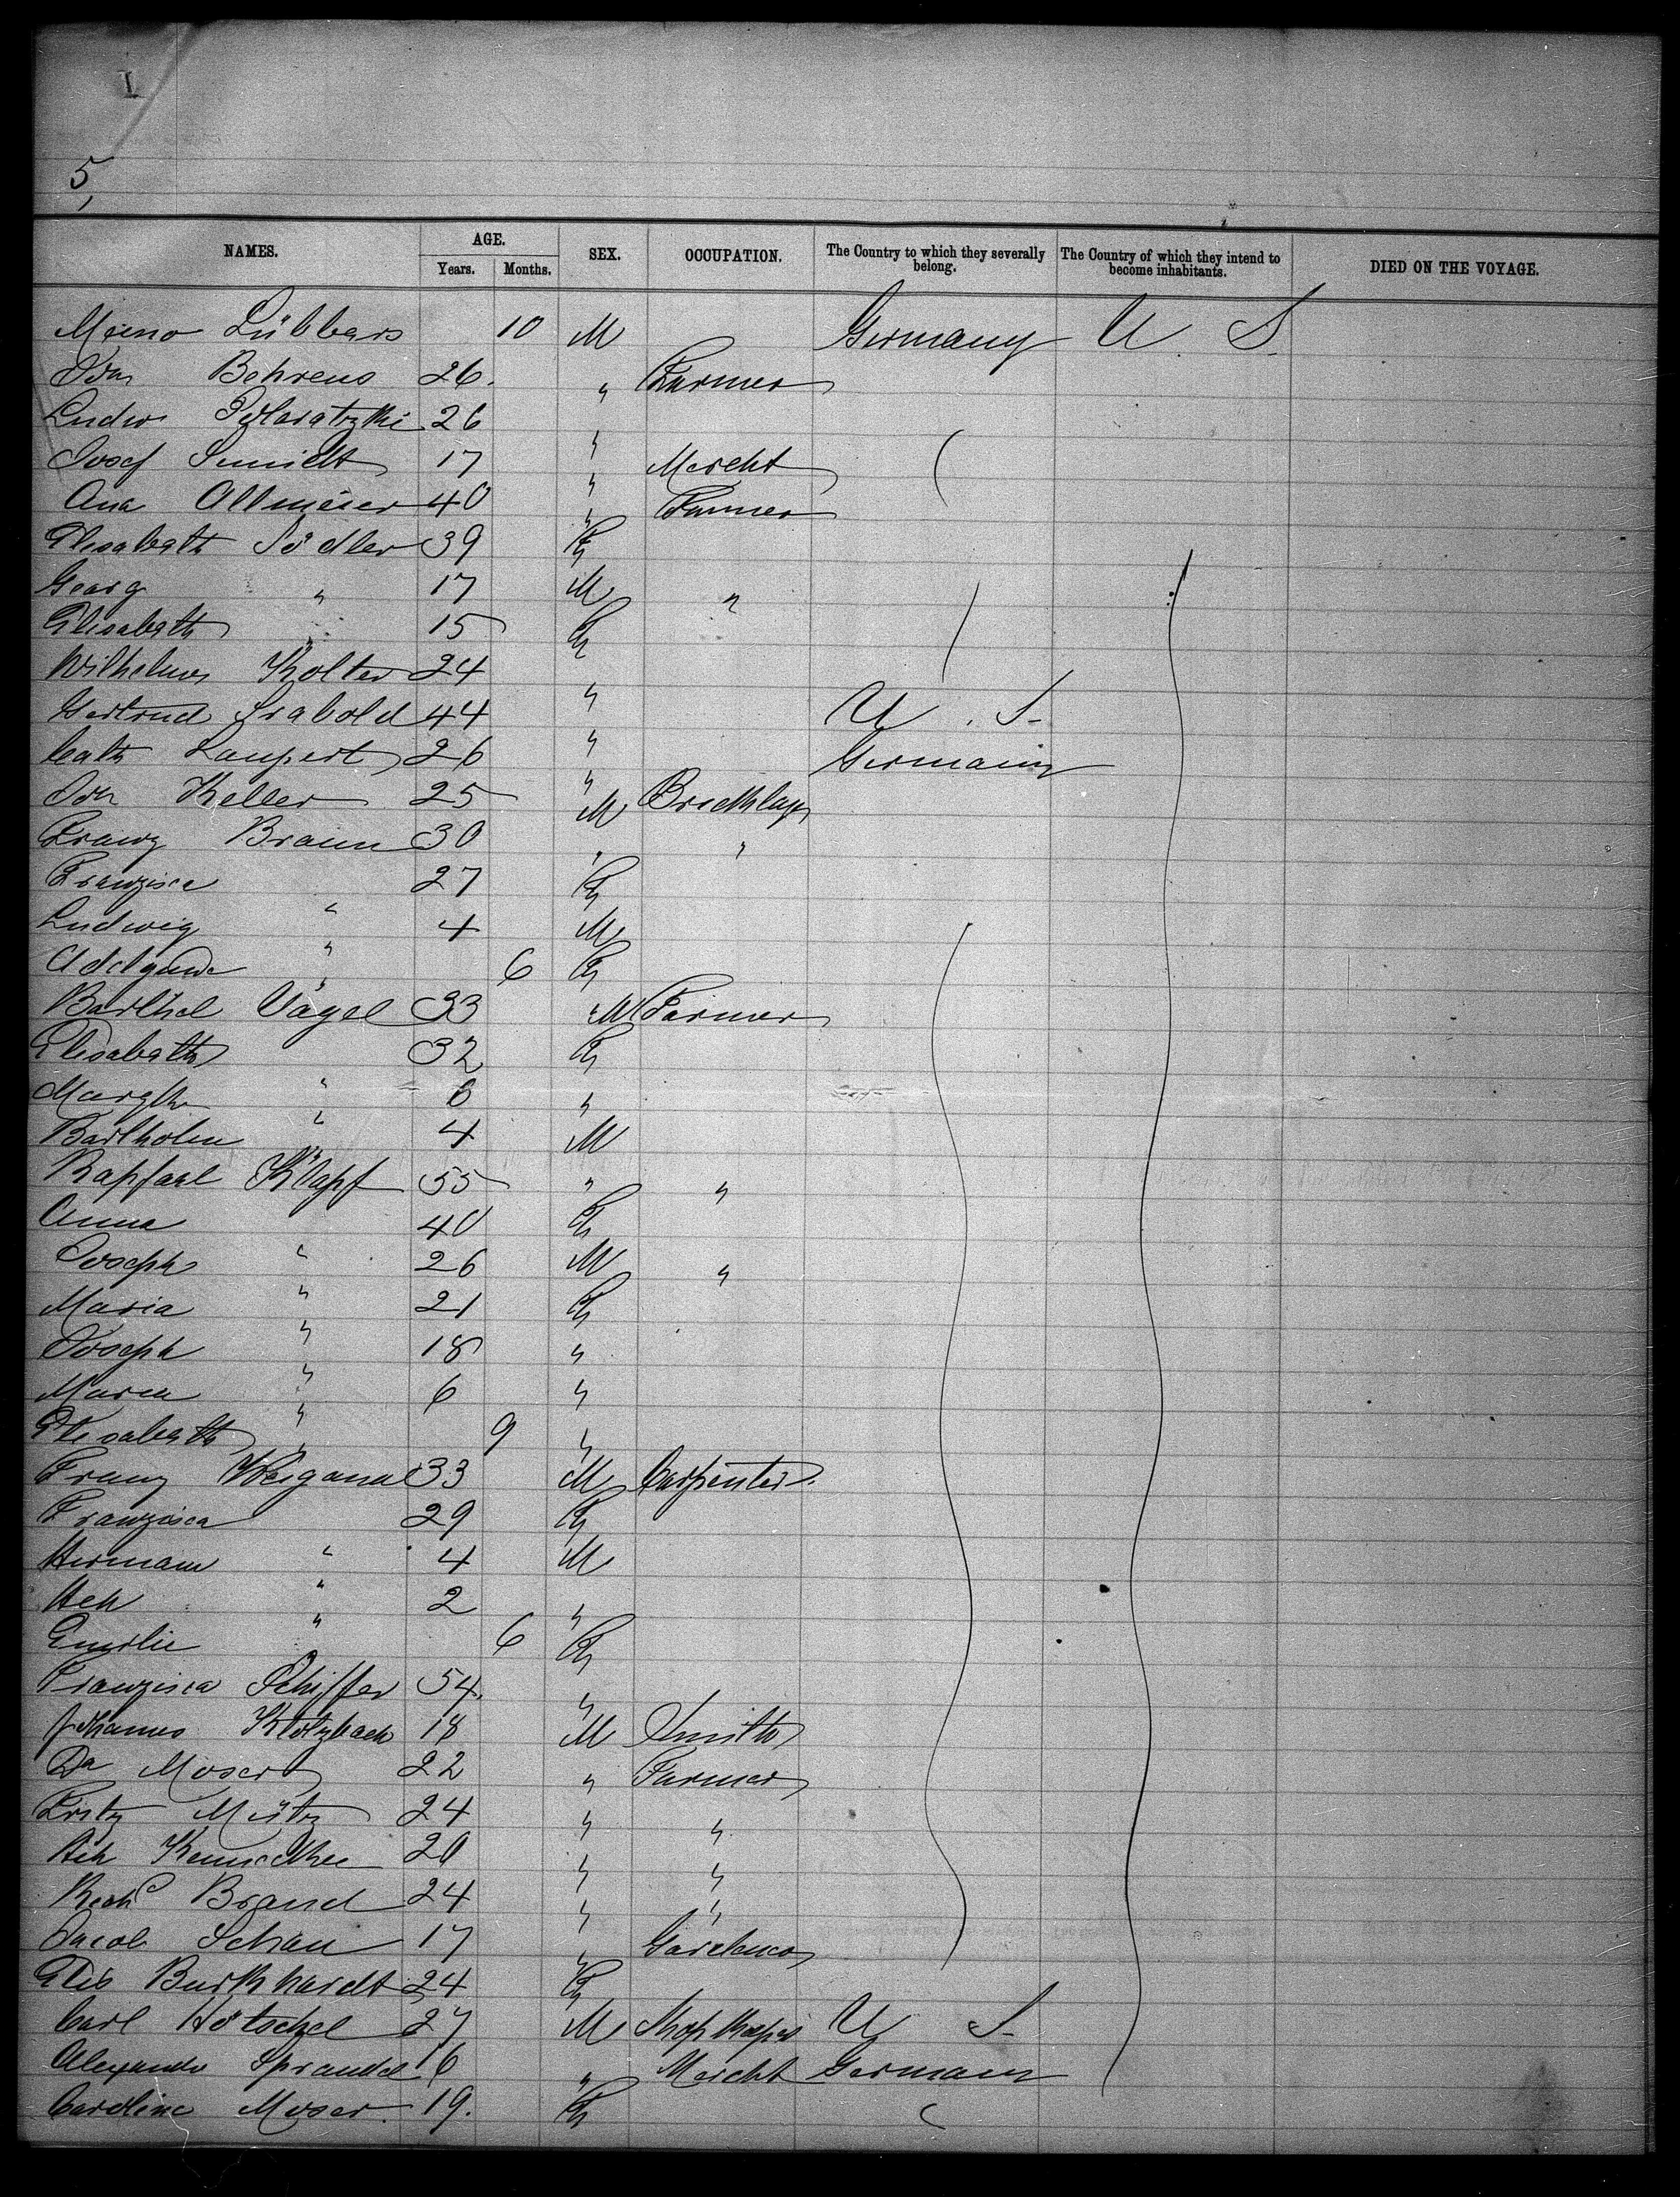 I
5,
NAMES. AGE. SEX. OCCUPATION. The Country to which they severally belong. The Country of which they intend to become inhabitants. DIED ON THE VOYAGE.
Years. Months.
Meino Lübbers 10 M Germany U. S.
Behrens 26. " Farmer
Ludw 26 "
Josef Smidt 17 " Mercht
Ana Allmeier 40 " Farmer
Elisabeth Södler 39 F
Georg " 17 M "
Elisabeth " 15 F
Wilhelm Kolter 24 "
Gertrud Srabold 44 " U. S.
Cath Lampert 26 " Germany
Keller 25 M Bricklay
Franz Braun 30 " "
Franzisca " 27 F
Ludwig " 4 M
" 6 F
Barthel Vägel 33 M Farmer
Elisabeth " 32 F
Margth " 6 "
Bartholm 4 M
Rapfael Klöpf 55 " "
Anna " 40 F
Joseph " 26 M "
Maria " 21 F
Joseph " 18 "
Maria " 6 "
Elisabeth " 9 "
Franz Weigand 33 M Carpenter.
Franzisca " 29 F
Hermann " 4 M
Hch " 2 "
Emilie 6 F
Franzisca Schiffer 54. "
Johannes Klötzbach 18 M Smith
Moser 22 " Farmer
Fritz 24 " "
Hch 20 " "
Richd Brand 24 " "
Jacob Schau 17 " Gardener
Elis Burkhardt 24 F
Carl Hötschel 27 M Shopkeeper U S-
Alexander Sprandel 16 " Mercht Germany
Caroline Moser. 19. F "